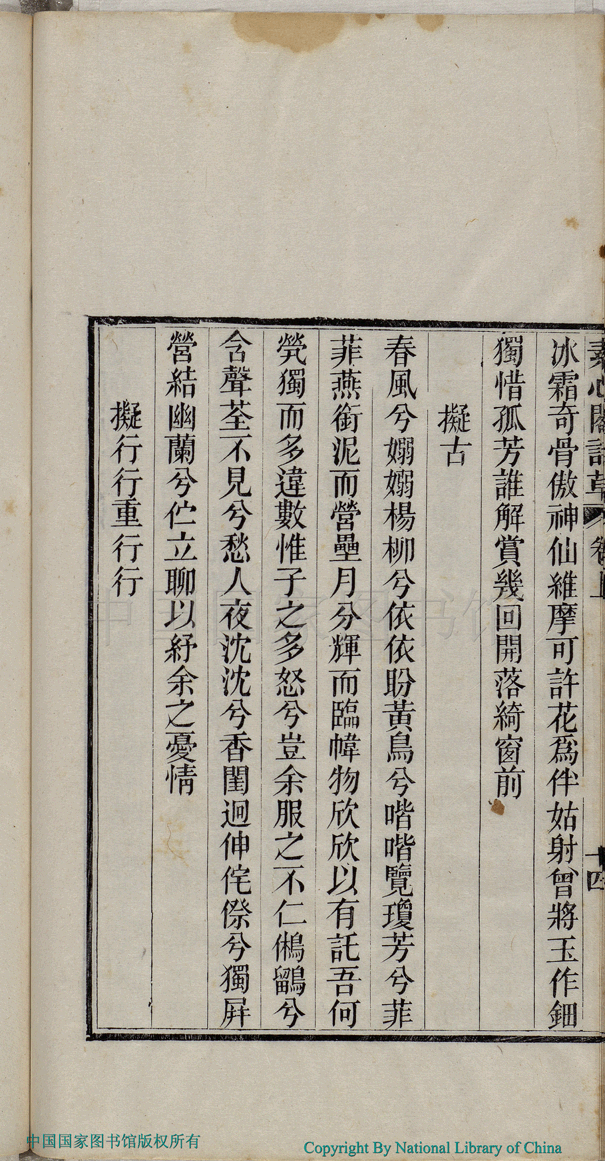 素心閣詩草 卷上 十四
冰霜奇骨傲神仙維摩可許花爲伴姑射曾將玉作鈿
獨惜孤芳誰解賞幾回開落綺窗前
擬古
春風兮嫋嫋楊柳兮依依盼黃鳥兮喈喈覽瓊芳兮菲
菲燕銜泥而營壘月分輝而臨幃物欣欣以有託吾何
煢獨而多違數惟子之多怒兮豈余服之不仁鵂鶹兮
含聲荃不見兮愁人夜沈沈兮香閨迥伸侘傺兮獨屏
營結幽蘭兮伫立聊以紓余之憂情
擬行行重行行
中国国家图书馆
中国国家图书馆版权所有
Copyright By National Library of China